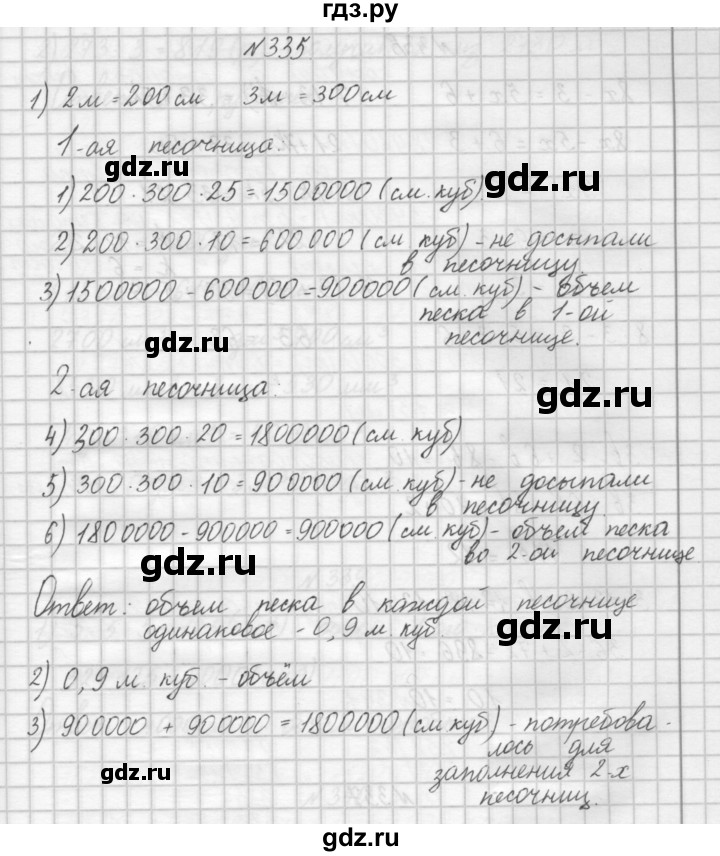 гдз.ру
№335
1) 2м = 200 см 3м = 300 см
1-ая песочница.
1) 200 · 300 · 25 = 1500000 (см. куб)
gdz.ru
2) 200 · 300 · 10 = 600 000 (см. куб) - не досыпали
в песочницу
3) 1500000 - 600 000 = 900000 (см. куб) - объем
песка в 1-ой
песочнице.
gdz.ru
2-ая песочница:
gdz.ru
4) 300 · 300 · 20 = 1800000 (см. куб)
5) 300 · 300 · 10 = 900000 (см. куб) - не досыпали
в песочницу.
6) 1800000 - 900000 = 900000 (см. куб) - объем песка
во 2-ой песочнице
gdz.ru
Ответ: объем песка в каждой песочнице
одинаковое - 0,9 м. куб.
gdz.ru
2) 0,9 м. куб. - объём
3) 900000 + 900000 = 1800000 (см куб) - потребова -
лось для
заполнения 2-х
песочниц.
gdz.ru
gdz.ru